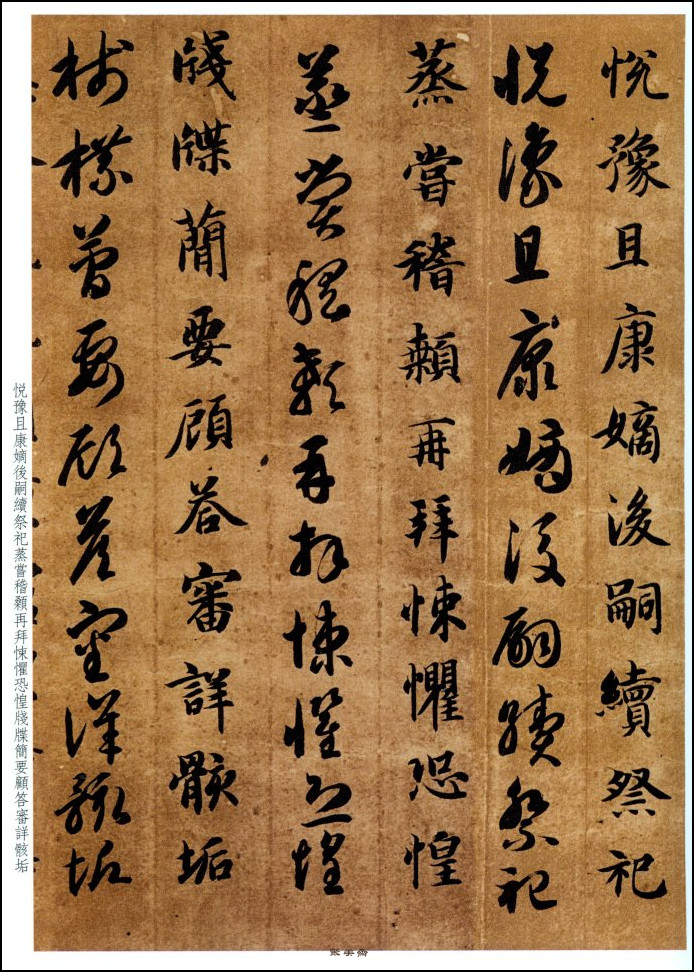 悅豫且康嫡後嗣續祭祀
悅豫且康嫡後嗣續祭祀
蒸嘗稽顙再拜悚懼恐惶
蒸嘗稽顙再拜悚懼恐惶
牋牒簡要顧答審詳骸垢
牋牒簡要顧答審詳骸垢
悦豫且康嫡後嗣續祭祀蒸嘗稽顙再拜悚懼恐惶牋牒簡要顧答審詳骸垢